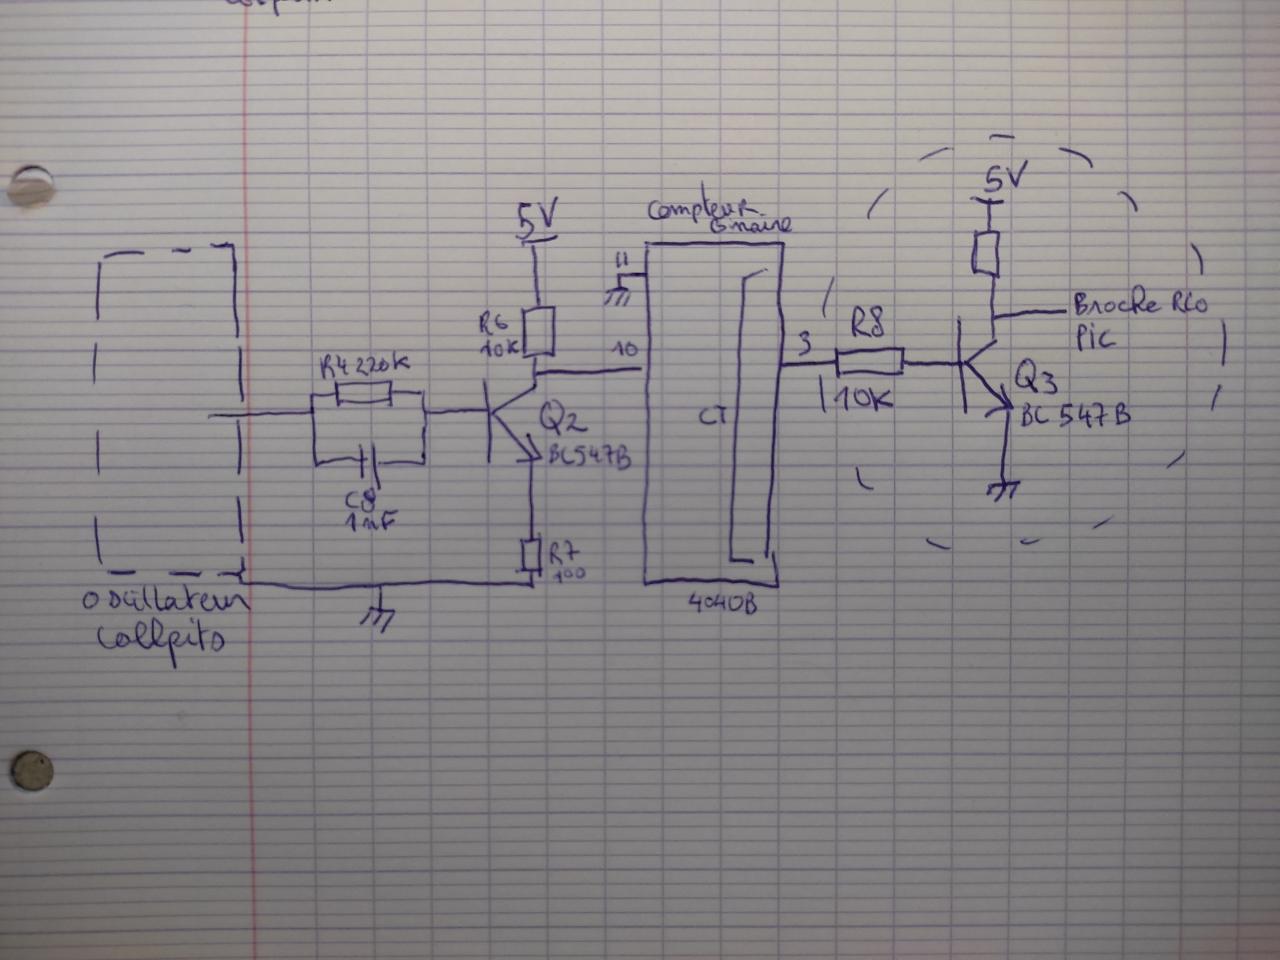 5V
Compteur
binaire
5V
11
R6
10K
10
3
R8
10K
Broche RC0
PIC
R4 220K
Q2
BC547B
CT
Q3
BC 547B
C8
1nF
R7
100
4040B
Oscillateur
Collpits